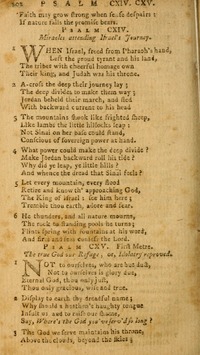 202 PSALM CXIV. CXV.
Faith may grow strong when sense despairs:
If nature fails the promise bears.
PSALM CXIV.
Miracles attending Israel's Journey.
WHEN Israel, freed from Pharaoh's hand,
Left the proud tyrant and his land,
The tribes with cheerful homage own
Their king, and Judah was his throne.
2 A-cross the deep their journey lay;
The deep divides to make them way;
Jordan beheld their march, and fled
With backward current to his head
3 The mountains shook like frighted sheep,
Like lambs the little hillocks leap;
Not Sinai on her base could stand,
Conscious of sovereign power at hand.
4 What power could make the deep divide?
Make Jordan backward roll his tide?
Why did ye leap, ye little hills?
And whence the dread that Sinai feels?
5 Let every mountain, every flood
Retire and know th' approaching God,
The King of Israel: see him here;
Tremble thou earth, adore and fear.
6 He thunders, and all nature mourns,
The rock to standing pools he turns;
Flints spring with fountains at his word,
And fires and seas confess the Lord.
PSALM CXV. First Metre.
The true God our Refuge; or, Idolatry reproved.
NOT to ourselves, who are but dust,
Not to ourselves is glory due,
Eternal God, thou only just,
Thou only gracious, wise and true.
2 Display to earth thy dreadful name;
Why should a heathen's haughty tongue
Insult us and to raise our shame,
Say, Where's the God you've serv'd so long?
3 The God we serve maintains his throne,
Above the clouds, beyond the skies;